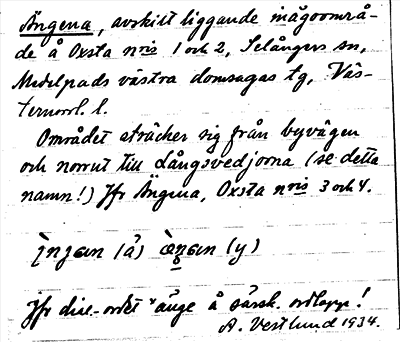 Ängena, avskilt liggande inägoområ-
de å Oxsta nris 1 och 2, Selångers sn,
Medelpads västra domsagas tg, Väs-
ternorrl. l.
Området sträcker sig från byvägen
och norrut till Långsvedjorna (se detta
namn!) Jfr Ängena, Oxsta nris 3 och 4.
(ä) (y)
Jfr dial-ordet änge å särsk. ordlapp!
A. Vestlund 1934.